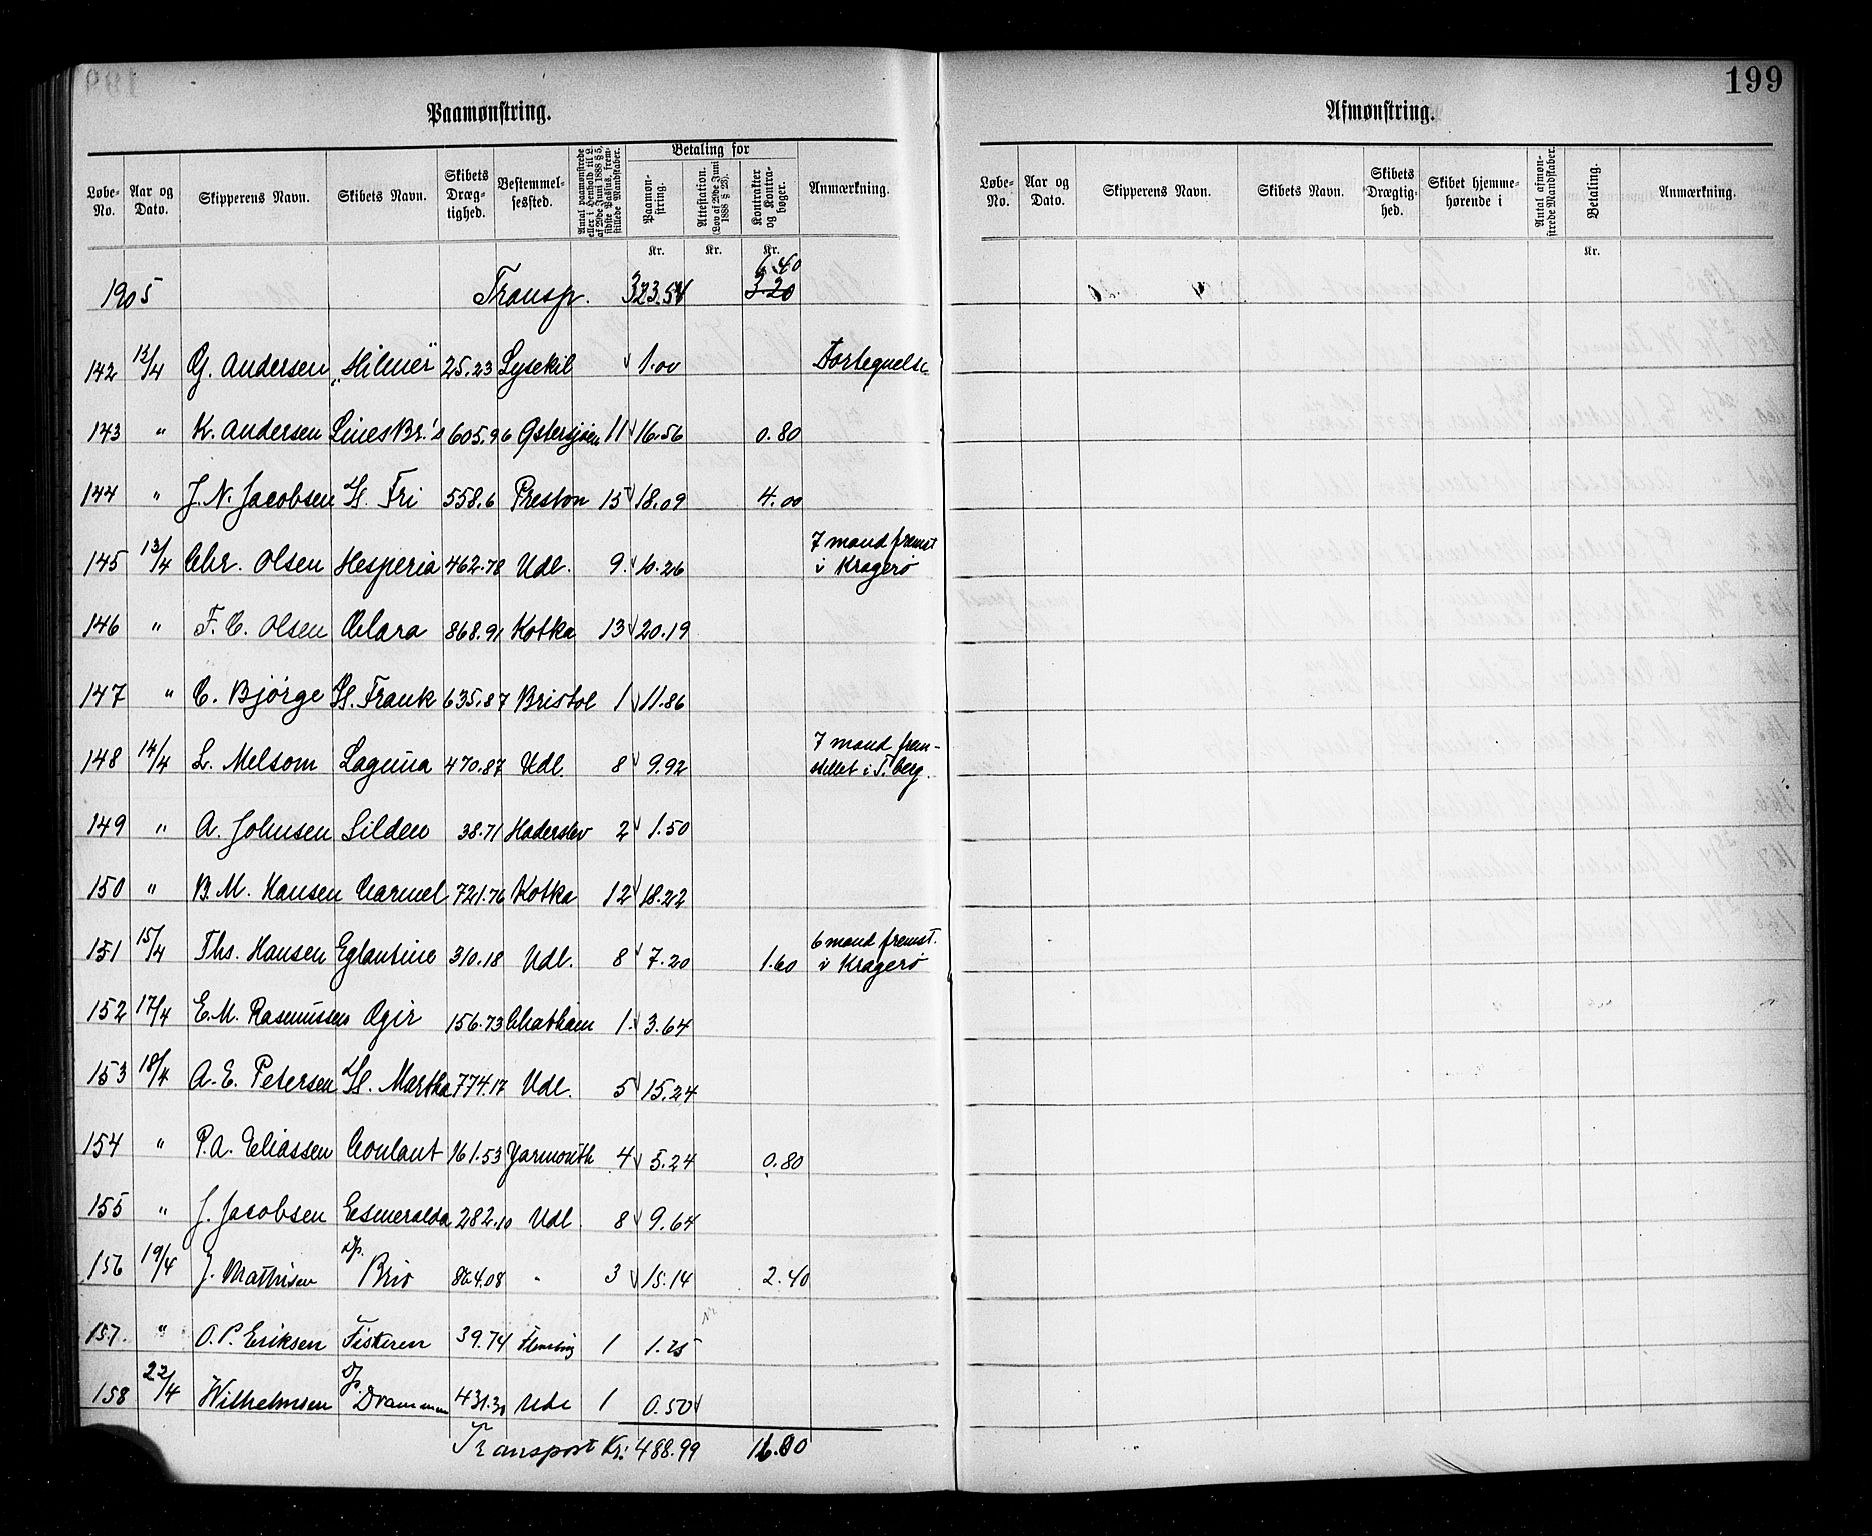 199
Paamønstring.
Afmønstring.
Løbe-No. Aar og Dato. Skipperens Navn. Skibets Navn. Skibets Dræg-tighed. Bestemmel-sessted. Antal paamønstrede eller i Henhold til L. af 29de Juni 1888 § 5, sidste Passus, frem-stillede Mandskaber. Betaling for Paamøn-string. Attestation. (Lov af 29de Juni 1888 § 23). Kontrakter og Kontra-bøger. Anmærkning.
Løbe-No. Aar og Dato. Skipperens Navn. Skibets Navn. Skibets Drægtig-hed. Skibet hjemme-hørende i Antal afmøn-strede Mandskaber. Betaling. Anmærkning.
Kr. Kr. Kr. Kr.
6.40
1905 Transp. 323.54 3.20
142 12/4 G. Andersen „Hilmer" 25.23 Lysekil 1.00 Fortegnelse
143 " K. Andersen Lines Br.'s 605.96 Østersjøen 11 16.56 0.80
144 " J. N. Jacobsen H. Fri 558.6 Preston 15 18.09 4.00
145 13/4 Chr. Olsen Hesperia 462.78 Udl. 9 10.26 7 mand fremst i Kragerø
146 " F. C. Olsen Clara 868.91 Kotka 13 20.19
147 " C. Bjørge H. Frank 635.87 Bristol 1 11.86
148 14/4 L. Melsom Laguna 470.87 Udl. 8 9.92 7 mand frem-stillet i T.berg.
149 " A. Johnsen Silden 38.71 Haderslev 2 1.50
150 " B. M. Hansen Carmel 721.76 Kotka 12 18.22
151 15/4 Ths. Hansen Eglantine 310.18 Udl. 8 7.20 1.60 6 mand fremst. i Kragerø
152 17/4 E. M. Rasmussen Ogir 156.73 Chatham 1. 3.64
153 18/4 A. E. Petersen H. Martha 774.17 Udl. 5 15.24
154 " P. A. Eliassen Coulant 161.53 Yarmouth 4 5.24 0.80
155 " J. Jacobsen Esmeralda 282.10 Udl 8 9.64
156 19/4 J. Mathisen Dp. Brio 864.08 " 3 15.14 2.40
157. " O. P. Eriksen Fiskeren 39.74 1 1.25
158 22/4 Wilhelmsen Dp. Drammen 431.30 Udl 1 0.50
Transport Kr: 488.99 16.00